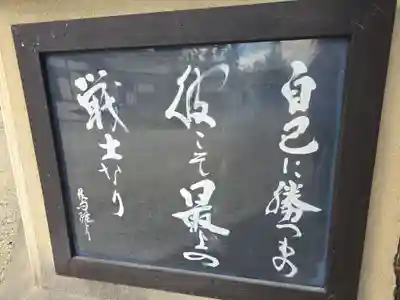 自己に勝つもの
彼こそ最上の
戦士なり